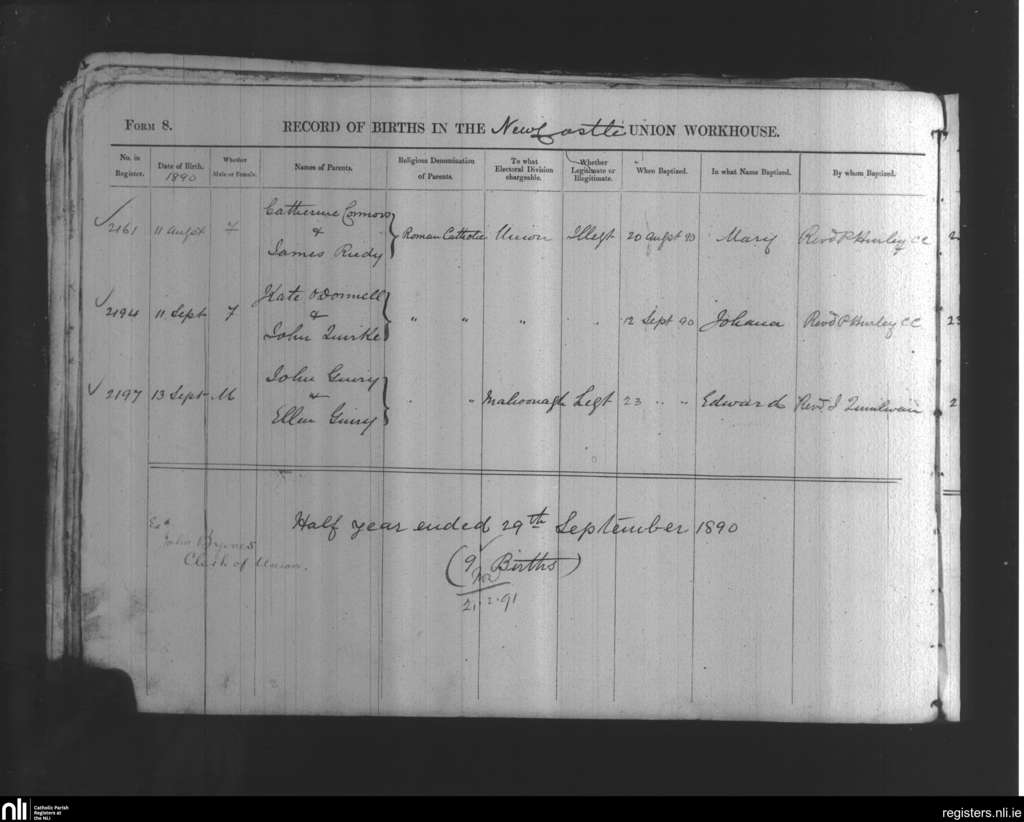 Form 8.
RECORD OF BIRTHS IN THE NewCastle UNION WORKHOUSE.
No. in Register.
Date of Birth. 1890
Whether Male or Female.
Names of Parents.
Religious Denomination of Parents.
To what Electoral Division chargeable.
Whether Legitimate or Illegitimate.
When Baptized.
In what Name Baptized.
By whom Baptized.
Catherine Connors
2161 11 Augst F & Roman Catholic Union Illegt 20 Augst 90 Mary Revd P Hurley CC
James Rudy
Kate O'Donnell
2194 11 Sept F & " " " " 12 Sept 90 Johana Revd P Hurley CC
John Quirke
John Guiry
2197 13 Sept M & " " Mahoonagh Legt 23 " " Edward Revd J
Ellen Guiry
Half year ended 29th September 1890
(9 Births)
21.2.91
John Byrnes
Clerk of Union.
nli
Catholic Parish
Registers at
the NLI
registers.nli.ie